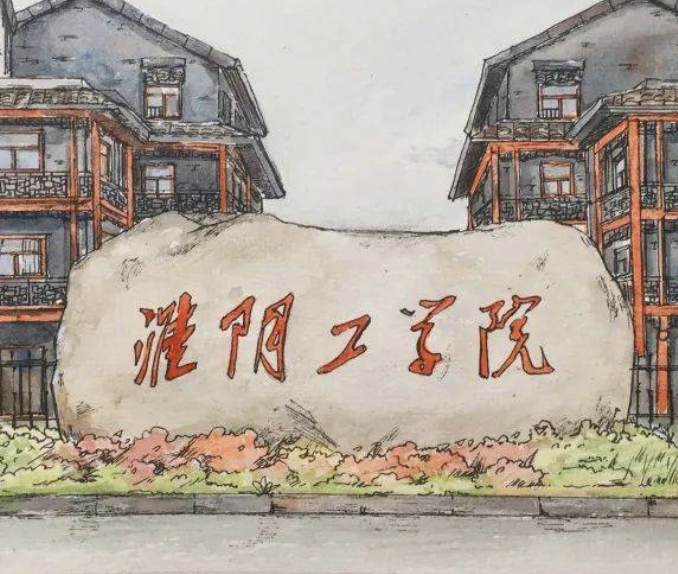 淮阴工学院